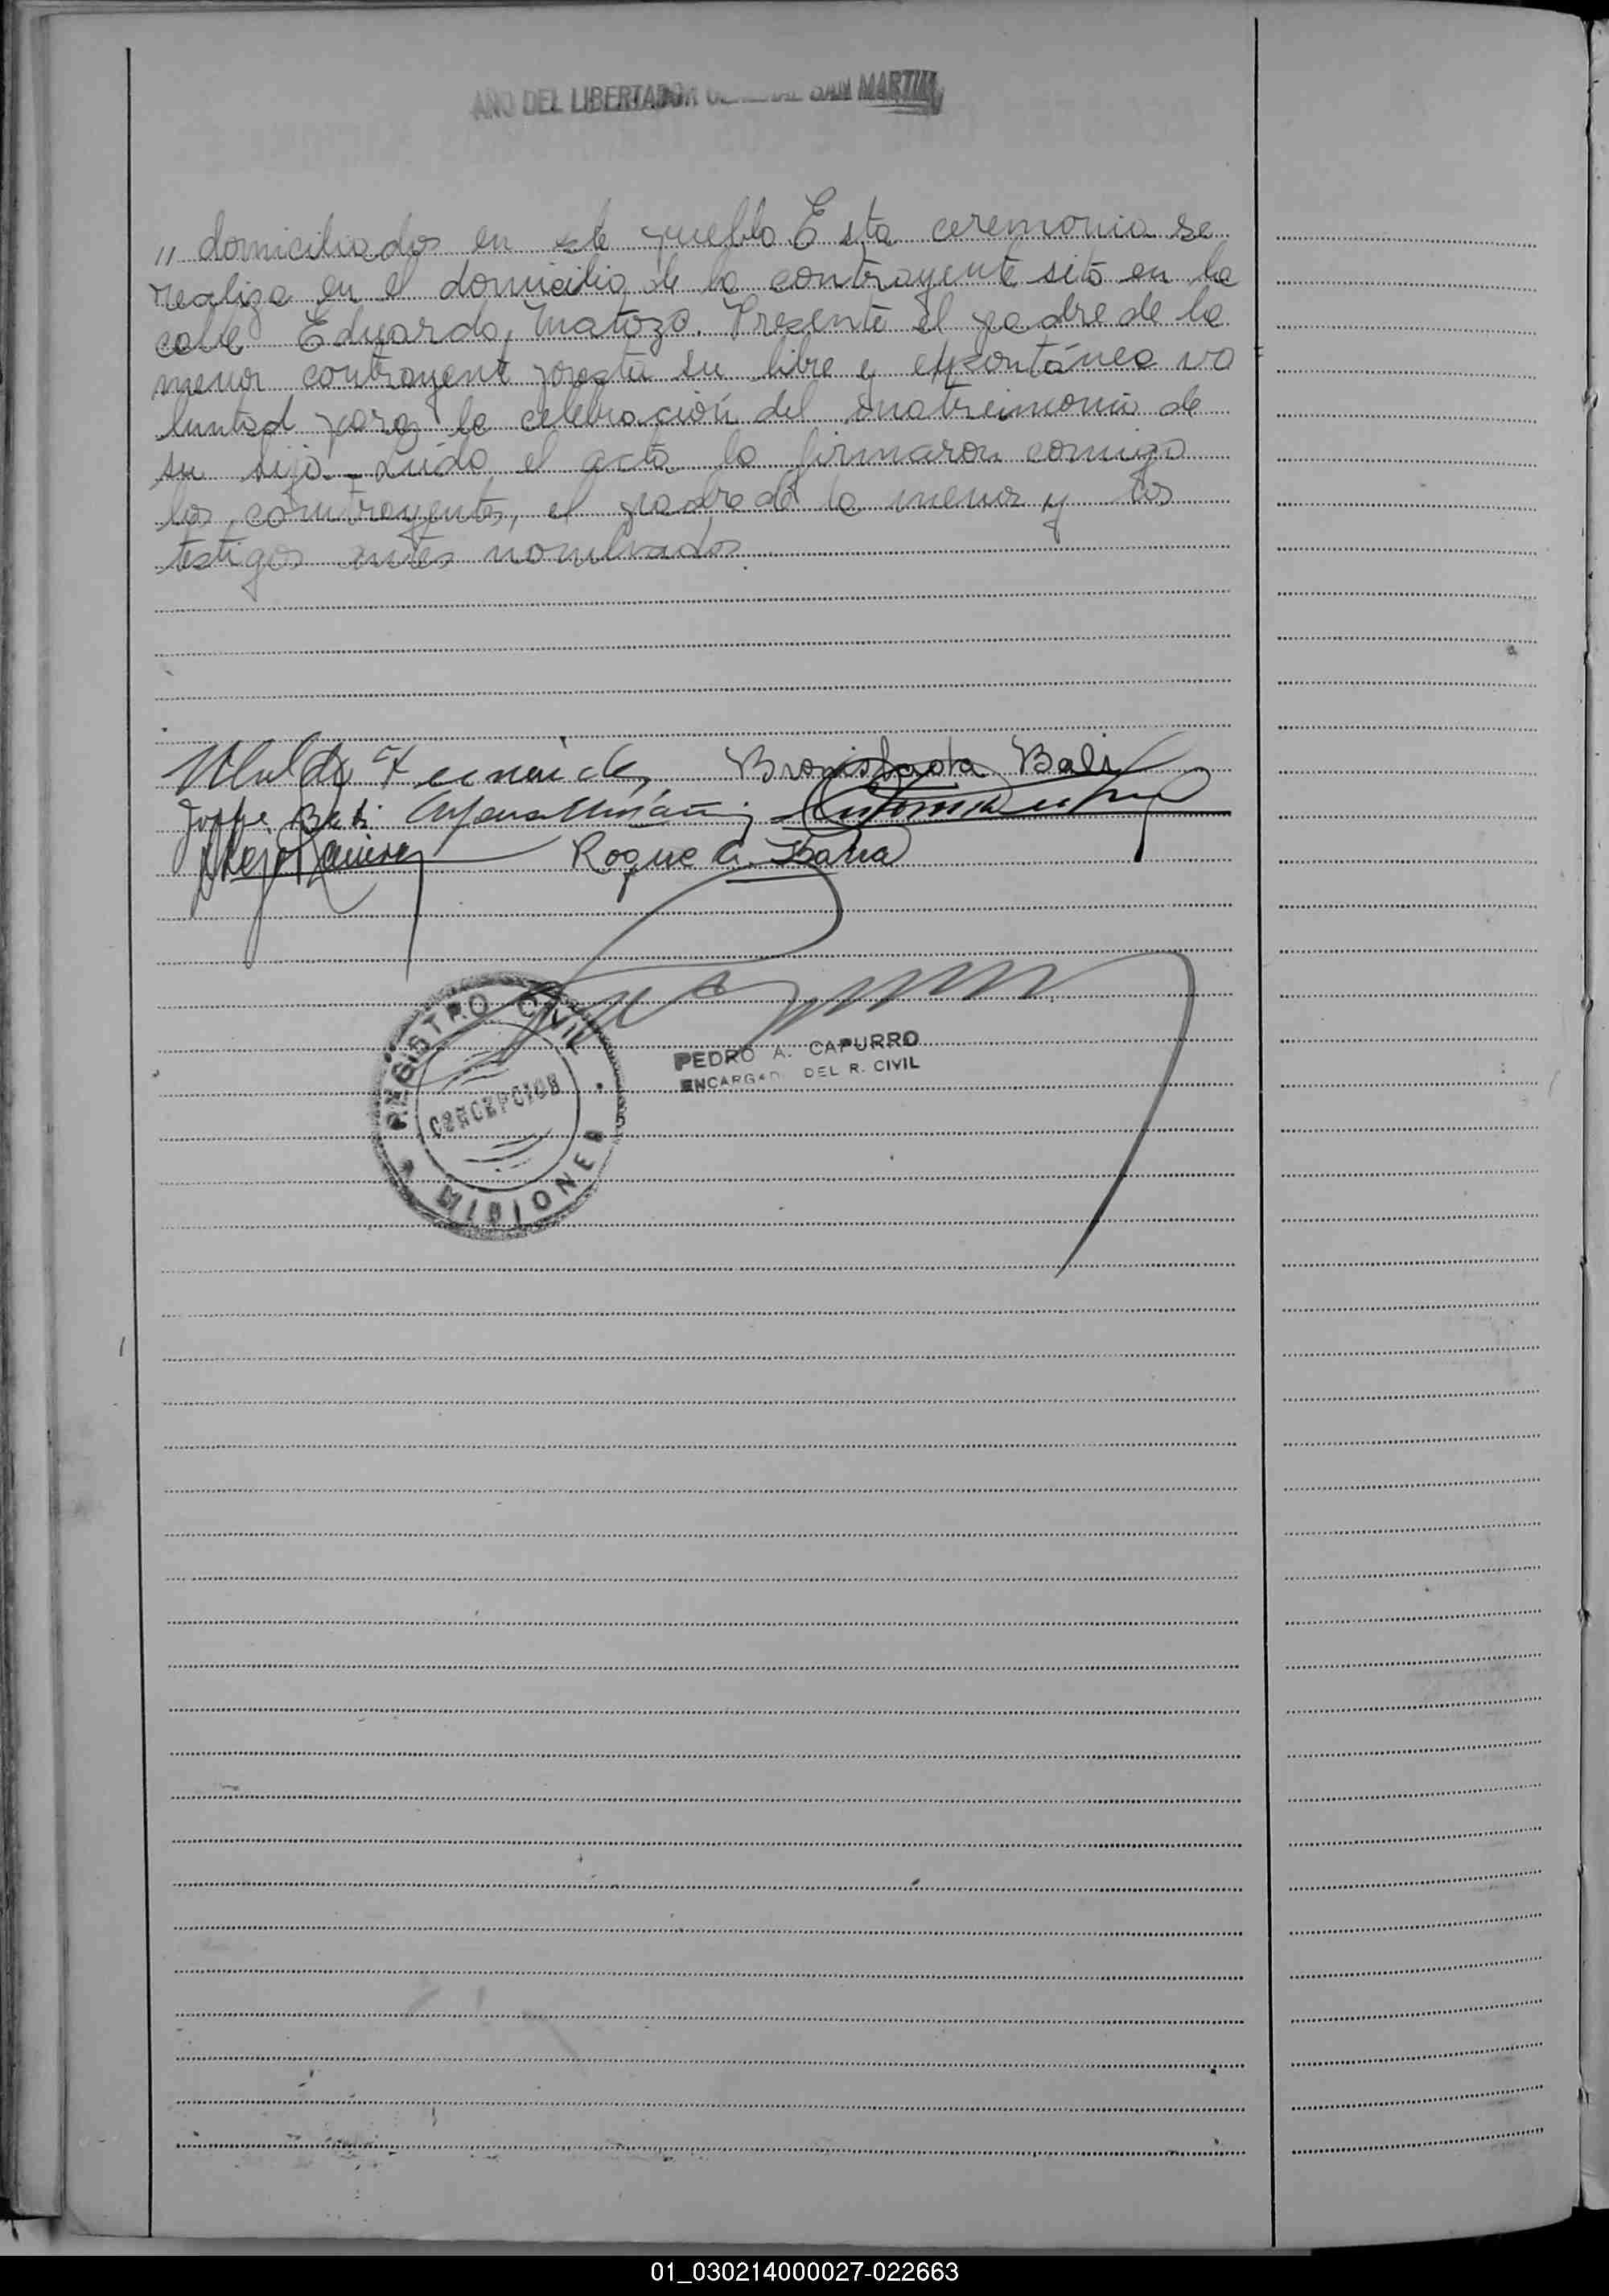 AÑO DEL LIBERTADOR GENERAL SAN MARTIN
" domiciliados en este pueblo Esta ceremonia se
realiza en el domicilio de la contrayente sito en la
calle Eduardo Matozo. Presente el padre de la
menor contrayent presta su libre y espontánea vo
luntad para la celebración del matrimonio de
su hija - Leída el acta la firmaron comigo
los contrayentes, el padre de la menor y los
testigos antes nombrados
Bronislaota Bali
Jossé Bali
Alejo Ramirez Roque A.
REGISTRO CIVIL
CONCEPCION
MISIONES
PEDRO A. CAPURRO
ENCARGADO DEL R. CIVIL
01_030214000027-022663